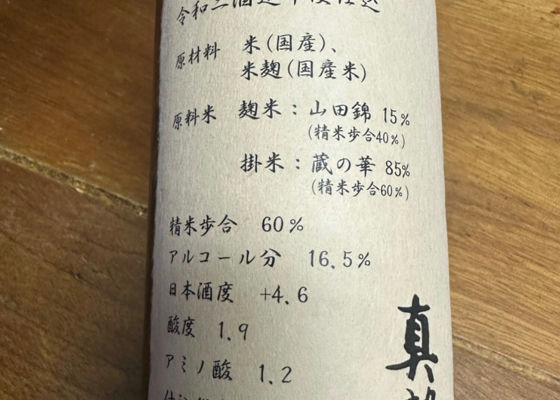 令和二酒造年度仕込
原材料 米(国産)、
米麹(国産米)
原料米 麹米：山田錦 15%
(精米歩合40%)
掛米：蔵の華 85%
(精米歩合60%)
精米歩合 60%
アルコール分 16.5%
日本酒度 +4.6
酸度 1.9
アミノ酸 1.2
真